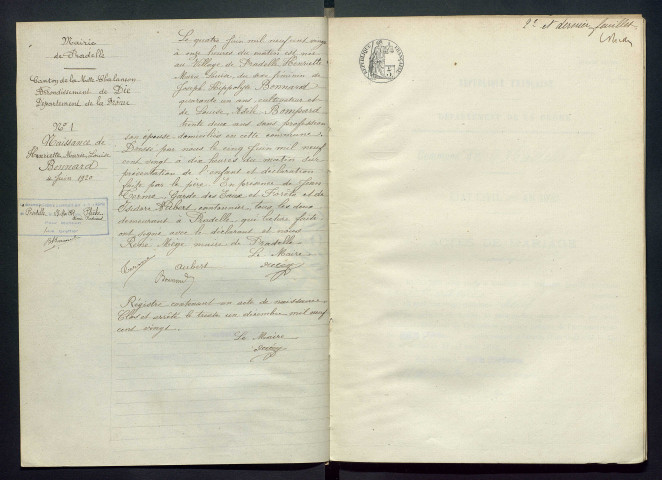 Mairie
de Pradelle
Canton de la Motte Chalancon
Arrondissement de Die
Département de la Drôme
N° 1
Naissance de
Henriette Maria Louisa
Bonnard
4 Juin 1920
Le quatre Juin mil neuf cent vingt
à onze heures du matin est née
au Village de Pradelle Henriette
Maria Louisa, du sexe féminin de
Joseph Hippolyte Bonnard
quarante un ans cultivateur et
de Louise Adèle Bompard
trente deux ans sans profession
son épouse domiciliés en cette commune
Dressé par nous le cinq Juin mil neuf
cent vingt à dix heures du matin sur
présentation de l'enfant et déclaration
faite par le père. En présence de Jean
Garde des Eaux et Forêts et de
Isidore Aubert cantonnier tous les deux
demeurant à Pradelle, qui lecture faite
ont signé avec le déclarant et nous
René Miège maire de Pradelle
Le Maire
Aubert
Miège
Bonnard
Registre contenant un acte de naissance
Clos et arrêté le trente un décembre mil neuf
cent vingt.
Le Maire
Miège
2e et dernier feuillet